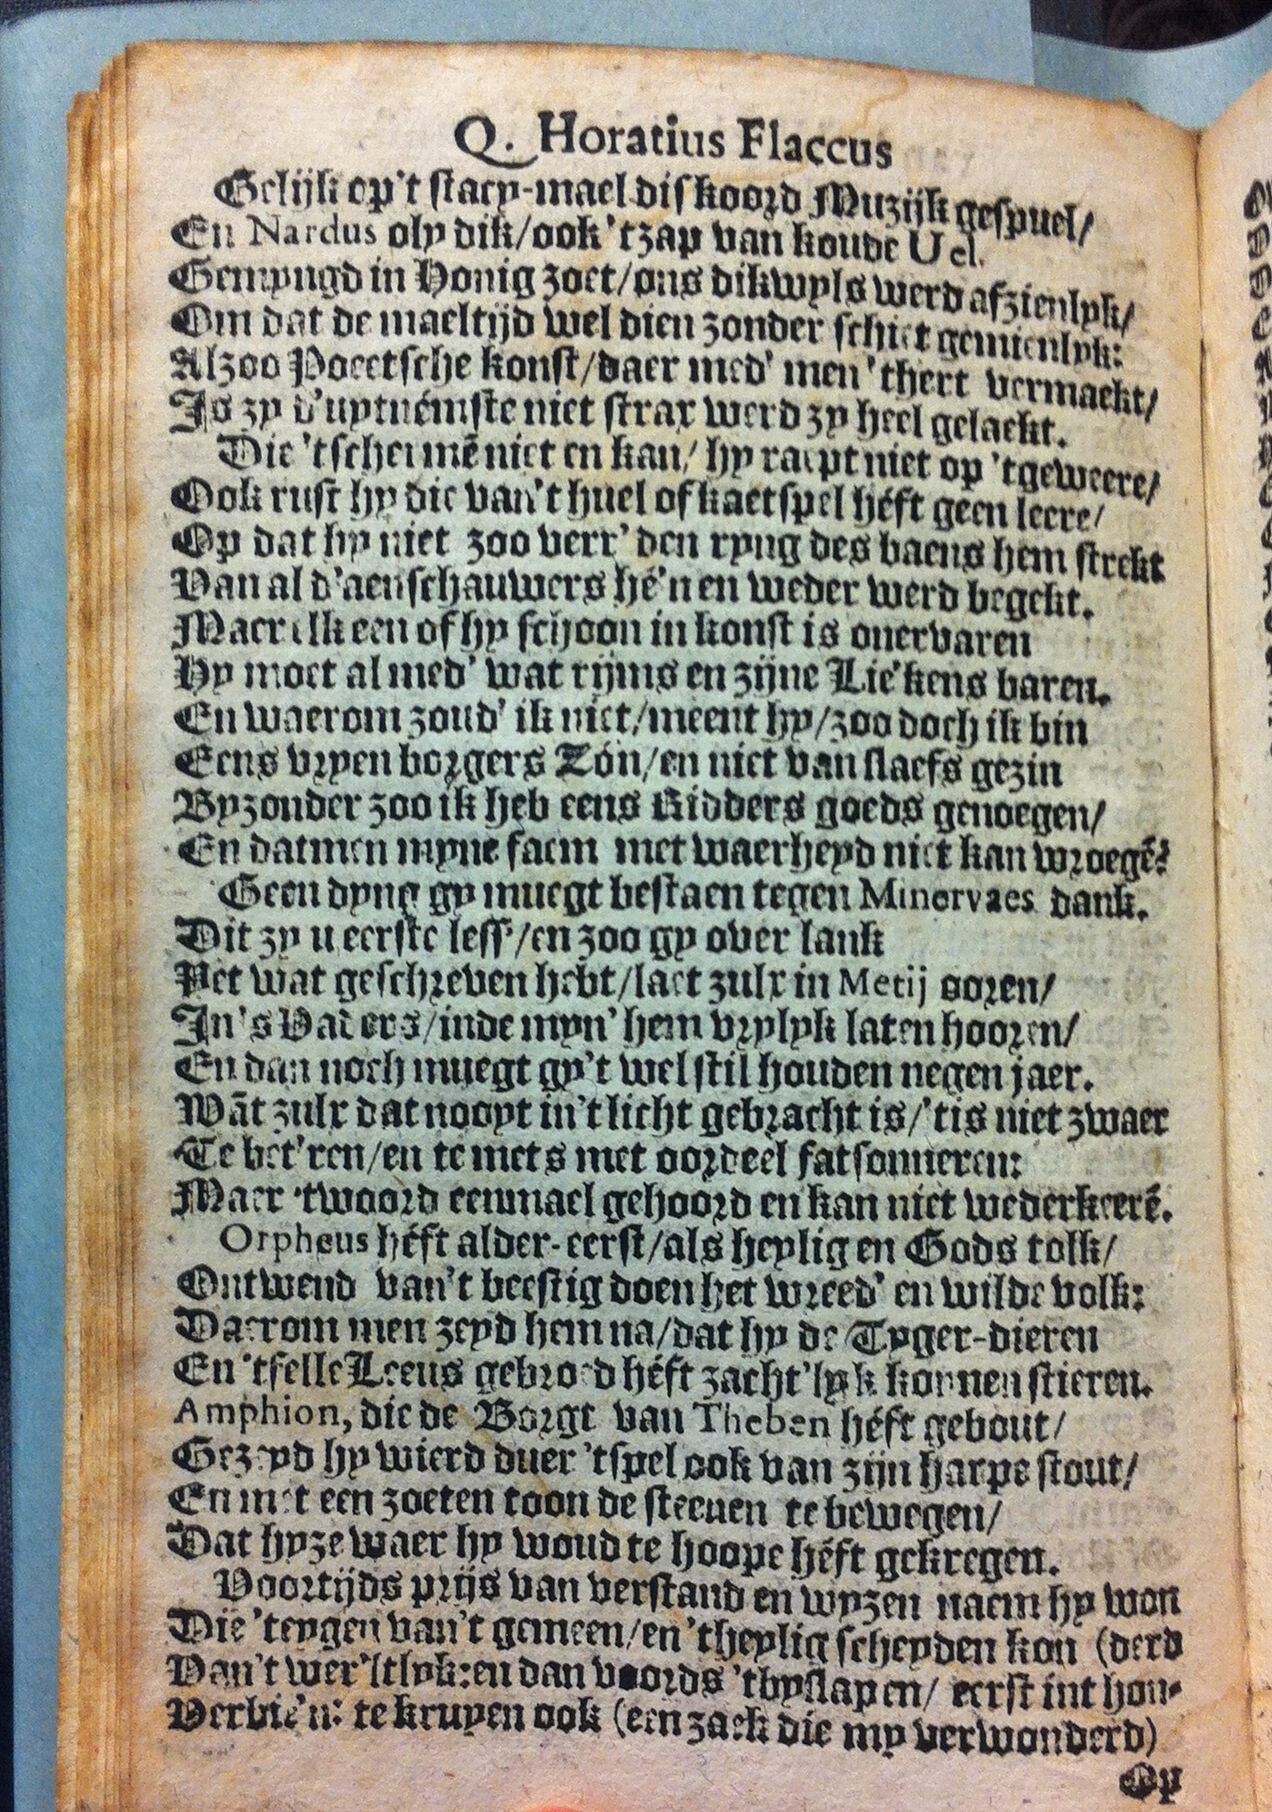 Q. Horatius Flaccus
Gelijk op't stacy-mael diskoord Muzijk gespuel/
En Nardus oly dik/ook 'tzap van koude Uel.
Gemyngd in Honig zoet/ons dikwyls werd afzienlyk/
Om dat de maeltijd wel dien zonder schiet gemienlyk:
Alzoo Poeetsche konst/daer med' men 'thert vermaekt/
Is zy d'uytnémste niet strax werd zy heel gelaekt.
Die 'tschermē niet en kan/ hy raept niet op 'tgeweere/
Ook rust hy die van't huel of kaetspel héft geen leere/
Op dat hy niet zoo verr' den ryng des baens hem strekt
Van al d'aenschauwers hé'n en weder werd begekt.
Maer elk een of hy schoon in konst is onervaren
Hy moet al med' wat rijms en zijne Lié'kens baren.
En waerom zoud' ik niet/meent hy/zoo doch ik bin
Eens vryen borgers Zón/en niet van slaefs gezin
Byzonder zoo ik heb eens Ridders goeds genoegen/
En datmen myne faem met waerheyd niet kan wroegē?
Geen dyng gy muegt bestaen tegen Minervaes dank.
Dit zy u eerste less'/en zoo gy over lank
Yet wat geschreven hebt/laet zulx in Metij ooren/
In 's Vaders/inde myn' hem vrylyk laten hooren/
En dan noch muegt gy't wel stil houden negen jaer.
Wāt zulx dat nooyt in't licht gebracht is/'tis niet zwaer
Te bet'ren/en temets met oordeel fatsonneren:
Maer 'twoord eenmael gehoord en kan niet wederkeerē.
Orpheus héft alder-eerst/als heylig en Gods tolk/
Ontwend van't beestig doen het wreed' en wilde volk:
Daerom men zeyd hem na/dat hy de Tyger-dieren
En 'tfelle Leeus gebroed héft zacht'lyk konnen stieren.
Amphion, die de Borgt van Theben héft gebout/
Gezeyd hy wierd duer 'tspel ook van zijn harpe stout/
En met een zoeten toon de steenen te bewegen/
Dat hyze waer hy woud te hoope héft gekregen.
Voortijds prijs van verstand en wyzen naem hy won
Die 'teygen van't gemeen/en 'theylig scheyden kon (derd
Van't wer'ltlyk:en dan voords 'tbyslapen/ eerst int hon-
Verbié'n: te kruypen ook (een zaek die my verwonderd)
Op